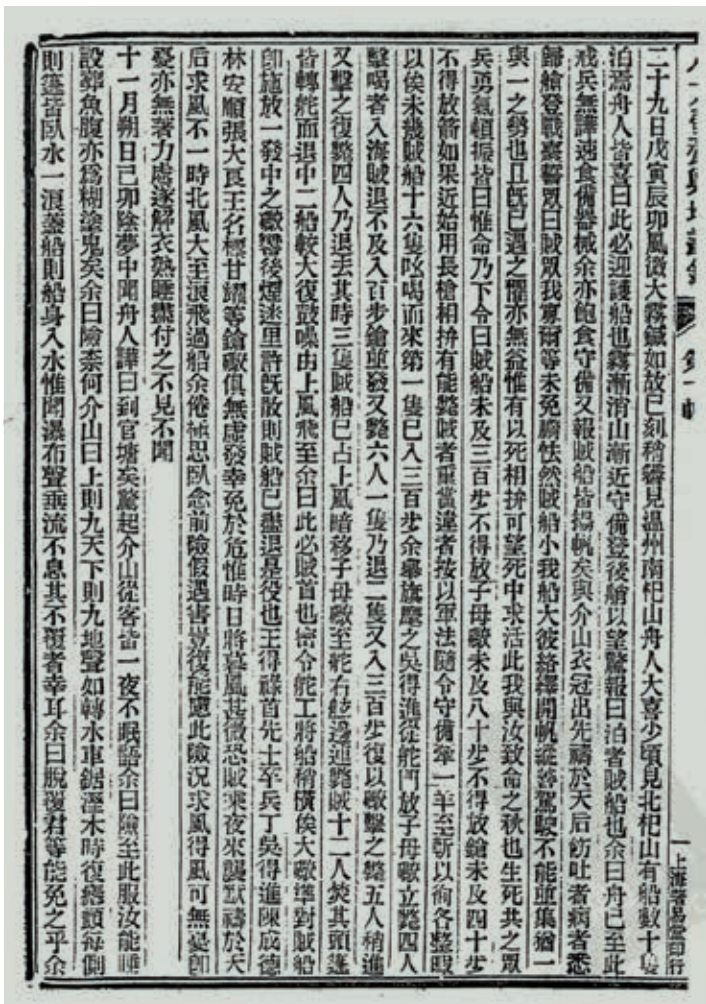 小方壺齋輿地叢鈔 第十帙
一 上海著易堂印行
二十九日戊寅辰卯風微大霧鍼如故巳刻稍霽見温州南杞山舟人大喜少頃見北杞山有船數十隻
泊焉舟人皆喜曰此必迎護船也霧漸消山漸近守備登後艄以望驚報曰泊者賊船也余曰舟已至此
戒兵無譁速食備器械余亦飽食守備又報賊船皆揚帆矣與介山衣冠出先禱於天后飭吐者病者悉
歸艙登戰臺誓眾曰賊眾我寡爾等未免膽怯然賊船小我船大彼絡繹開帆縱並駕駛不能並集猶一
與一之勢也且既已遇之懼亦無益惟有以死相拚可望死中求活此我與汝致命之秋也生死共之眾
兵勇氣頓振皆曰惟命乃下令曰賊船未及三百步不得放子母礮未及八十步不得放鎗未及四十步
不得放箭如果近始用長槍相拚有能斃賊者重賞違者按以軍法隨令守備牽一羊至斬以徇各整暇
以俟未幾賊船十六隻吆喝而來第一隻已入三百步余舉旗麾之吳得進從舵門放子母礮立斃四人
擊喝者入海賊退不及入百步鎗並發又斃六人一隻乃退二隻又入三百步復以礮擊之斃五人稍進
又擊之復斃四人乃退去其時三隻賊船已占上風暗移子母礮至舵右舷邊連斃賊十二人焚其頭篷
皆轉舵而退中二船較大復鼓噪由上風飛至余曰此必賊首也密令舵工將船稍橫俟大礮準對賊船
即施放一發中之礮響後煙迷里許既散則賊船已盡退是役也王得祿首先士卒兵丁吳得進陳成德
林安順張大良王名標甘耀等鎗礮俱無虛發幸免於危惟時日將暮風甚微恐賊乘夜來襲默禱於天
后求風不一時北風大至浪飛過船余倦極思臥念前險假遇害豈復能慮此險況求風得風可無憂即
憂亦無著力處遂解衣熟睡盡付之不見不聞
十一月朔日己卯陰夢中聞舟人譁曰到官塘矣驚起介山從客皆一夜不眠語余曰險至此服汝能睡
設葬魚腹亦為糊塗鬼矣余曰險奈何介山曰上則九天下則九地聲如轉水車鋸溼木時復瘛顫每側
則篷皆臥水一浪蓋船則船身入水惟聞瀑布聲垂流不息其不覆者幸耳余曰脫覆君等能免之乎余